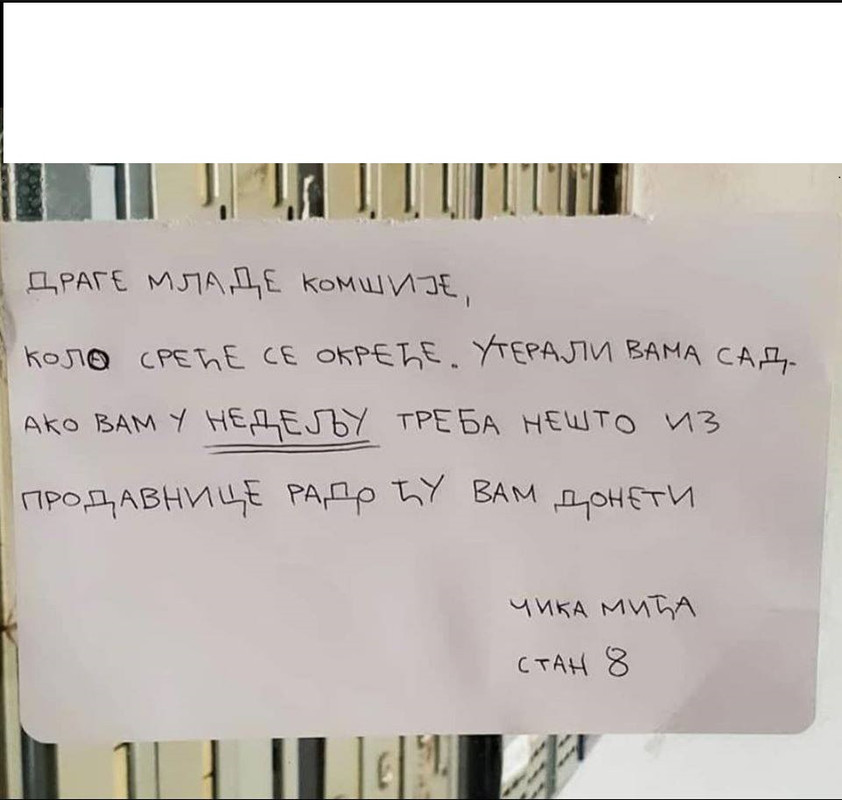 ДРАГЕ МЛАДЕ КОМШИЈЕ,
КОЛО СРЕЋЕ СЕ ОКРЕЋЕ. УТЕРАЛИ ВАМА САД.
АКО ВАМ У НЕДЕЉУ ТРЕБА НЕШТО ИЗ
ПРОДАВНИЦЕ РАДО ЋУ ВАМ ДОНЕТИ
ЧИКА МИЋА
СТАН 8